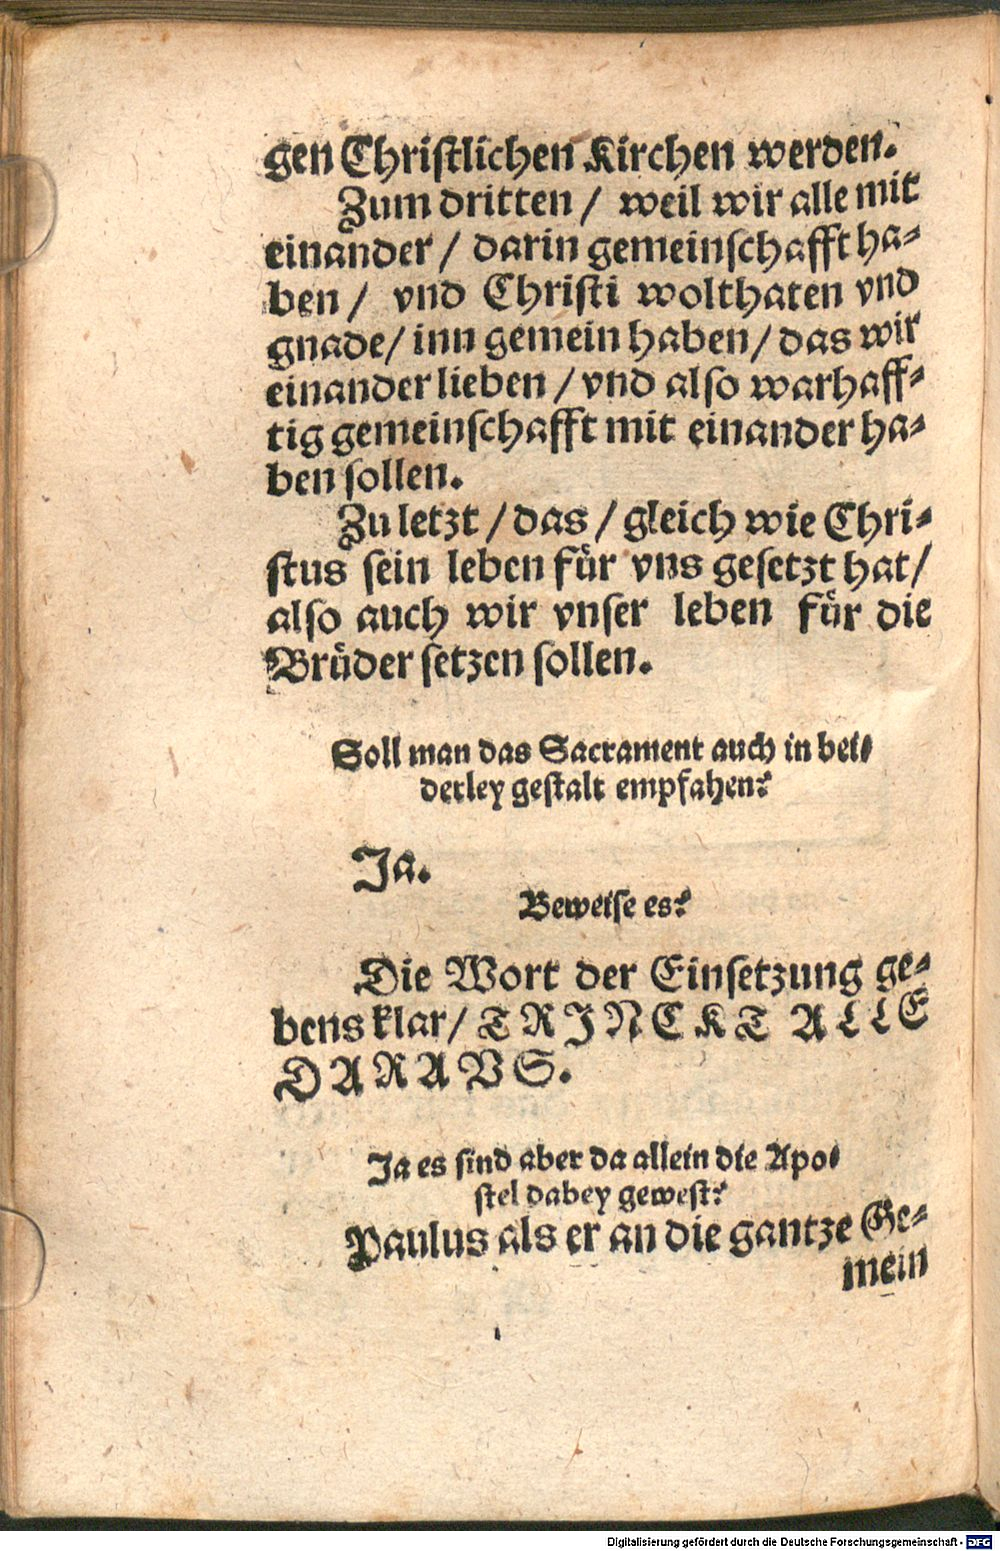 gen Christlichen Kirchen werden.
Zum dritten / weil wir alle mit
einander / darin gemeinschafft ha⸗
ben / vnd Christi wolthaten vnd
gnade / inn gemein haben / das wir
einander lieben / vnd also warhaff⸗
tig gemeinschafft mit einander ha⸗
ben sollen.
Zu letzt / das / gleich wie Chri⸗
stus sein leben für vns gesetzt hat /
also auch wir vnser leben für die
Brüder setzen sollen.
Soll man das Sacrament auch in bei⸗
derley gestalt empfahen?
Ja.
Beweise es?
Die Wort der Einsetzung ge⸗
bens klar / TRINCKT ALLE
DARAVS.
Ja es sind aber da allein die Apo⸗
stel dabey gewest?
Paulus als er an die gantze Ge⸗
mein
Digitalisierung gefördert durch die Deutsche Forschungsgemeinschaft - DFG